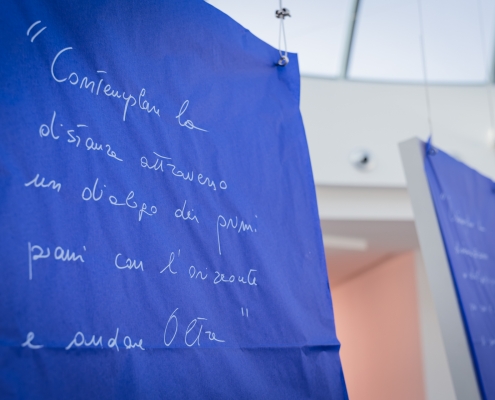 "Contemplar la
distanza attraverso
un dialogo dei primi
piani con l'orizzonte
e andare Oltre"